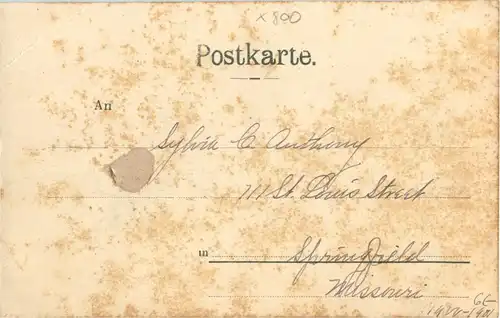 x 800
Postkarte.
An
Sylvia C Anthony
711 St. Louis Street
in Springfield
Missouri
GE